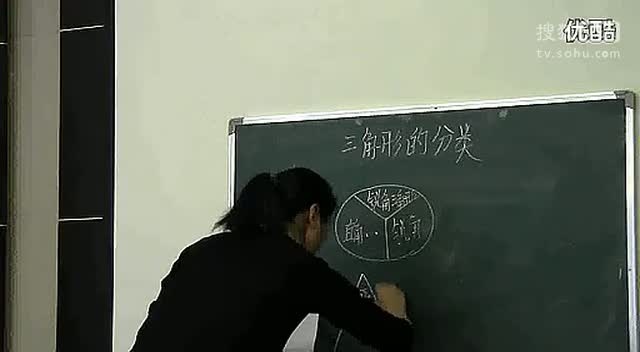 优酷
tv.sohu.com
三角形的分类
锐角三角形
直角
钝角